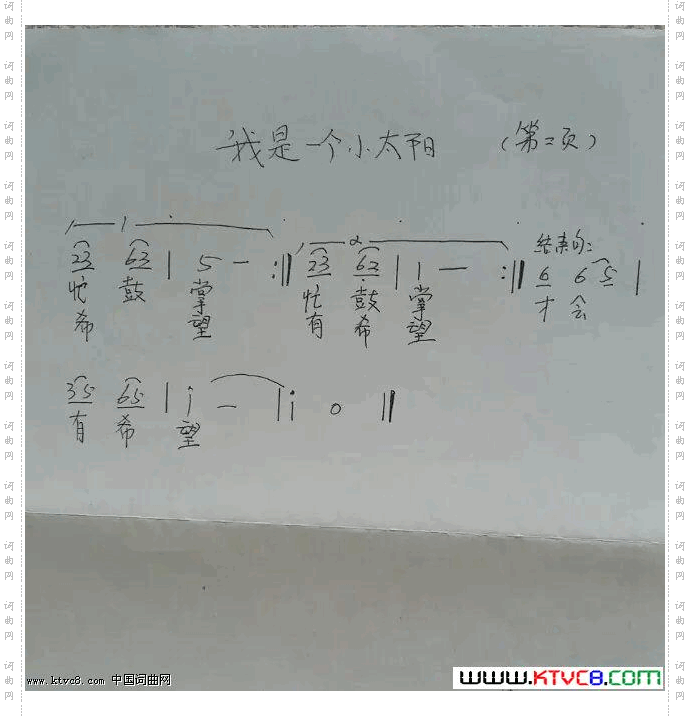 我是一个小太阳 (第二页)
1 2 结束句:
23 63 | 5 - :‖ 23 63 | 1 - :‖ 6 6 5 |
忙 鼓 掌 忙 鼓 掌 才 会
希 望 有 希 望
35 65 | i - | i 0 ‖
有 希 望
www.ktvc8.com 中国词曲网
www.KTVC8.com
词曲网